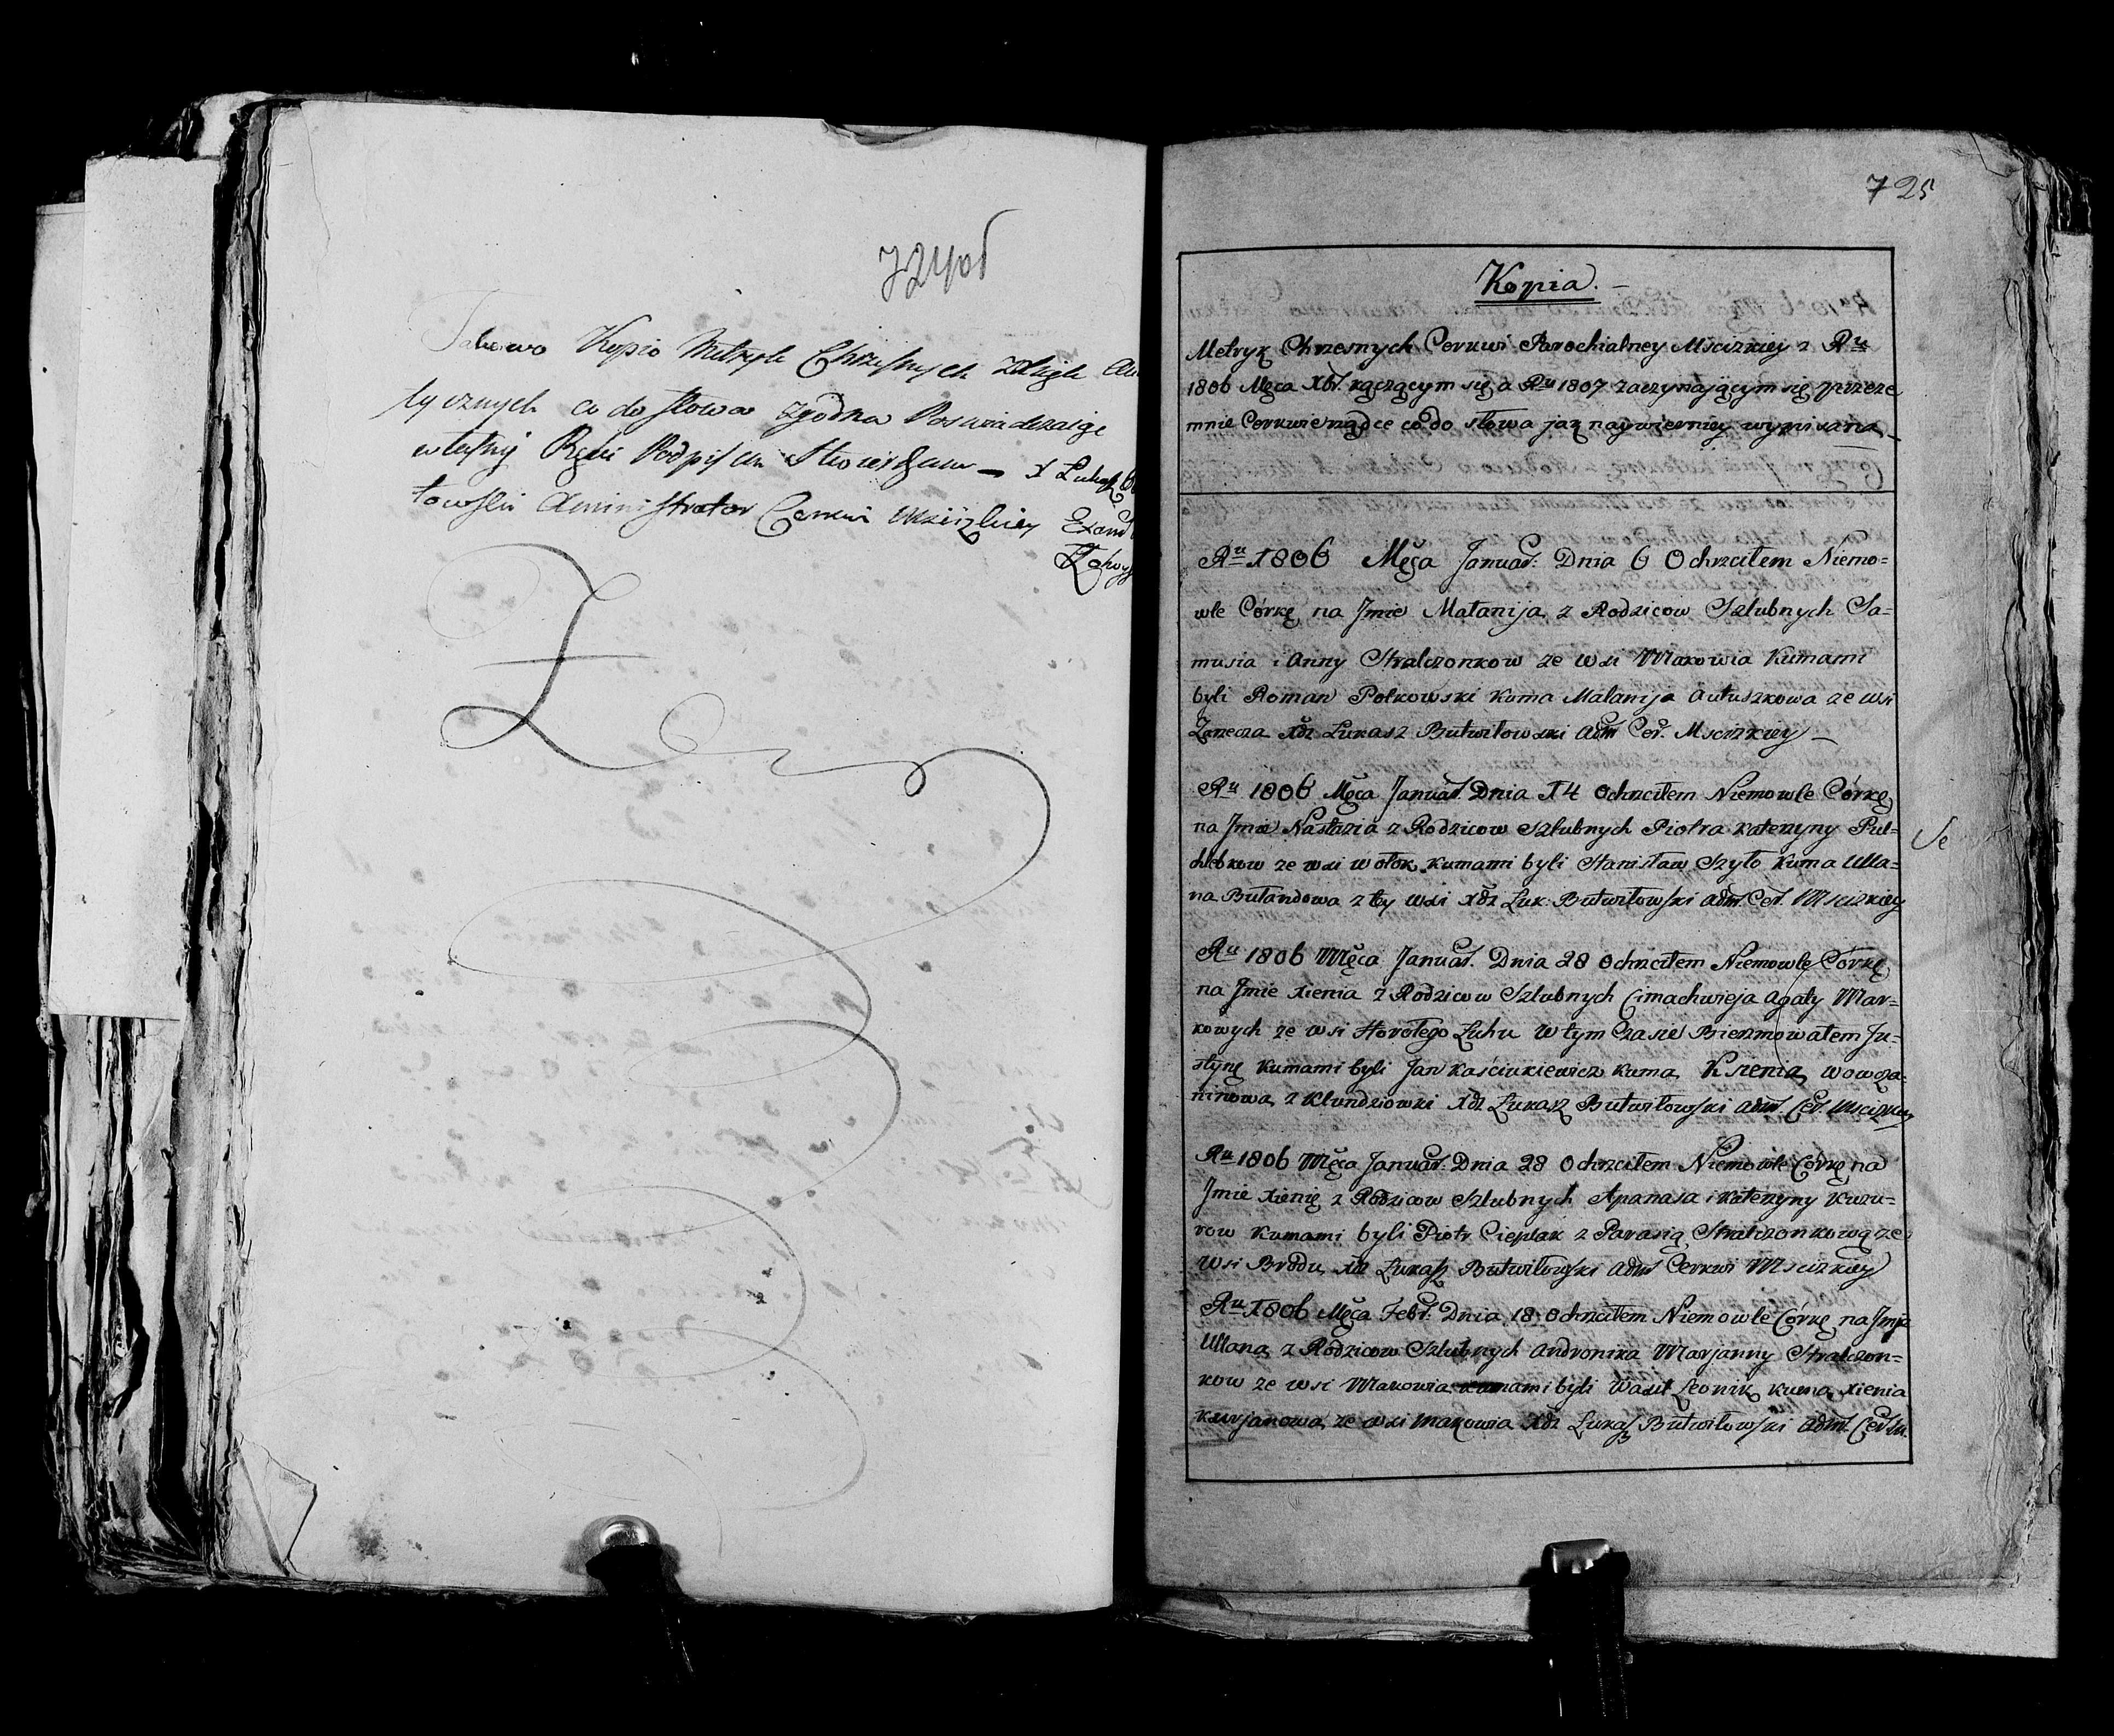 724об
Takowa Kopia Metryk Chrzesnych
tycznych co do słowa zgodna Poswiadczaiąc
własney Ręki Podpisem Stwierdzam — X Łukasz
towski Administrator Cerkwi Mściżkiey
725
Kopia.
Metryk Chrzesnych Cerkwi Parochialney Mścizkiey z Ru
1806 Męca Xbr. kączącym się a Ru 1807 zaczynaiącym się przeze
mnie Cerkwie rządce co do słowa jak naywierniey wypisana
Ru 1806 Męca Januar. Dnia 6 Ochrzciłem Niemo=
wle Córkę na Jmie Małanija z Rodzicow Szlubnych Sa=
musia i Anny Stralczonkow ze wsi Makowia Kumami
byli Roman Połkowski Kuma Malanija Autuszkowa ze wsi
Zarecza Xdz Łukasz Butwiłowski Adm Cer. Mscizkiey
Ru 1806 Męca Januar. Dnia 14 Ochrzciłem Niemowle Córkę
na Jmie Nastazia z Rodzicow Szlubnych Piotra Katerzyny Pul=
chlebkow ze wsi Wołok Kumami byli Stanisław Szyło Kuma Ulla=
na Bułandowa z tey wsi Xdz Łuk: Butwiłowski Adm. Cer. Mscizkiey
Ru 1806 Męca Januar. Dnia 28 Ochrzciłem Niemowle Córkę
na Jmie Xienia z Rodzicow Szlubnych Cimachwieja Agaty Mar=
kowych ze wsi Horołego Łuhu w tym Czasie Bierzmowałem Ju=
stynę Kumami byli Jan Kaściukiewicz Kuma Ksienia Wowcza=
ninowa z Klundziowki Xdz Łukasz Butwiłowski Adm. Cer. Mscizkiey
Ru 1806 Męca Januar. Dnia 28 Ochrzciłem Niemowle Córkę na
Jmie Xienię z Rodzicow Szlubnych Apanasa i Katerzyny Kuzu=
row Kumami byli Piotr Cieplak z Parasią Stralczonkową ze
wsi Brodu Xdz Łukasz Butwiłowski Adm Cerkwi Mscizkiey
Ru 1806 Męca Febr. Dnia 18 Ochrzciłem Niemowle Córkę na Jmie
Ullana z Rodzicow Szlubnych Andronika Marjanny Stralczon=
kow ze wsi Makowia Kumami byli Wasil Leonik Kuma Xienia
Kurjanowa ze wsi Makowia Xdz Łukasz Butwiłowski Adm. Cer. M.